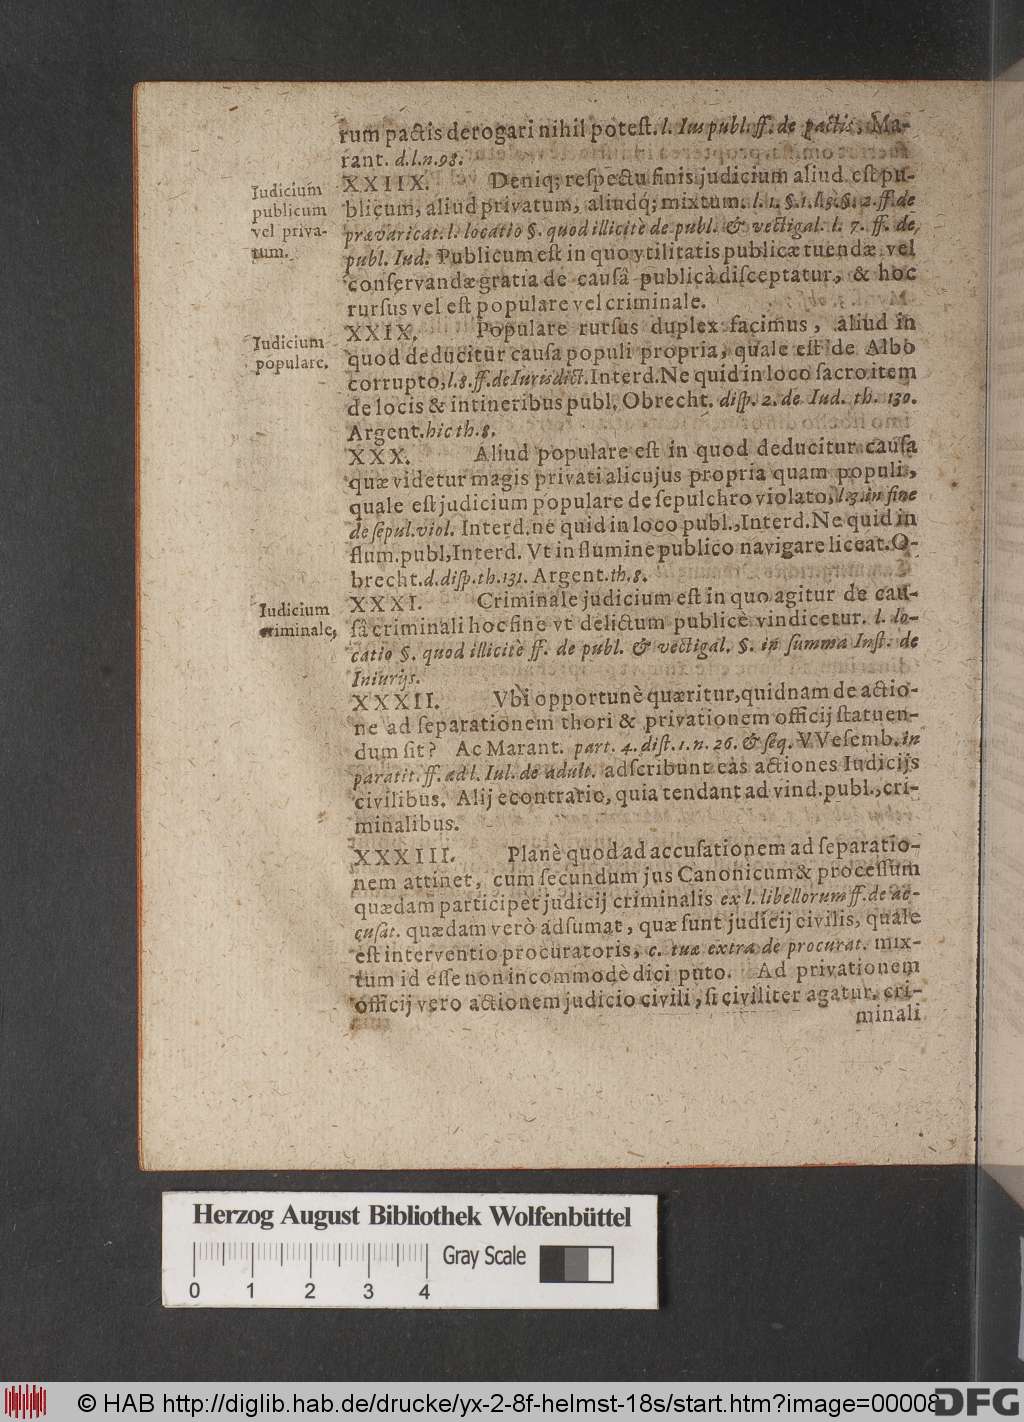 rum pactis derogari nihil poteſt. l. Ius publ. ff. de pactis, Ma-
rant. d. l. n. 98.
Iudicium
publicum
vel priva-
tum.
XXIIX. Deniq; reſpectu finis judicium aliud eſt pu-
blicum, aliud privatum, aliudq́; mixtum. l. 1. §. 1. l. 3. §. 2. ff. de
prævaricat. l. locatio §. quod illicitè de publ. & vectigal. l. 7. ff. de
publ. Iud. Publicum eſt in quo ytilitatis publicæ tuendæ vel
conſervandæ gratia de cauſâ publicâ diſceptatur, & hoc
rurſus vel eſt populare vel criminale.
Iudicium
populare.
XXIX. Populare rurſus duplex facimus, aliud in
quod deducitur cauſa populi propria, quale eſt de Albo
corrupto, l. 8. ff. de Iurisdict. Interd. Ne quid in loco ſacro item
de locis & intineribus publ. Obrecht. diſp. 2. de Iud. th. 130.
Argent. hic th. 8.
XXX. Aliud populare eſt in quod deducitur cauſa
quæ videtur magis privati alicujus propria quam populi,
quale eſt judicium populare de ſepulchro violato, l. 3. in fine
de ſepul. viol. Interd. ne quid in loco publ., Interd. Ne quid in
flum. publ, Interd. Vt in flumine publico navigare liceat. O-
brecht. d. diſp. th. 131. Argent. th. 8.
Iudicium
criminale,
XXXI. Criminale judicium eſt in quo agitur de cau-
ſâ criminali hoc fine vt delictum publicè vindicetur. l. lo-
catio §. quod illicitè ff. de publ. & vectigal. §. in ſumma Inſt. de
Iniurijs.
XXXII. Vbi opportunè quæritur, quidnam de actio-
ne ad ſeparationem thori & privationem officij ſtatuen-
dum ſit? Ac Marant. part. 4. diſt. 1. n. 26. & ſeq. VVeſemb. in
paratit. ff. ad l. Iul. de adult. adſcribunt eas actiones Iudicijs
civilibus. Alij econtrario, quia tendant ad vind. publ., cri-
minalibus.
XXXIII. Planè quod ad accuſationem ad ſeparatio-
nem attinet, cum ſecundum jus Canonicum & proceſſum
quædam participet judicij criminalis ex l. libellorum ff. de ac-
cuſat. quædam verò adſumat, quæ ſunt judicij civilis, quale
eſt interventio procuratoris, c. tuæ extra de procurat. mix-
tum id eſſe non incommodè dici puto. Ad privationem
officij vero actionem judicio civili, ſi civiliter agatur, cri-
minali
Herzog August Bibliothek Wolfenbüttel
Gray Scale
0 1 2 3 4
© HAB http://diglib.hab.de/drucke/yx-2-8f-helmst-18s/start.htm?image=00008
DFG